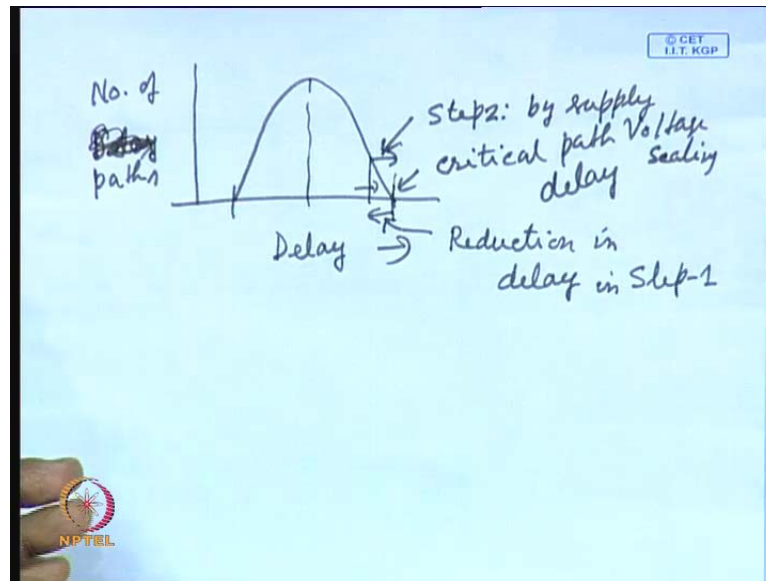 © CET
I.I.T. KGP
No. of
paths
Step2: by supply
Voltage
scaling
critical path
delay
Delay → Reduction in
delay in Step-1
NPTEL